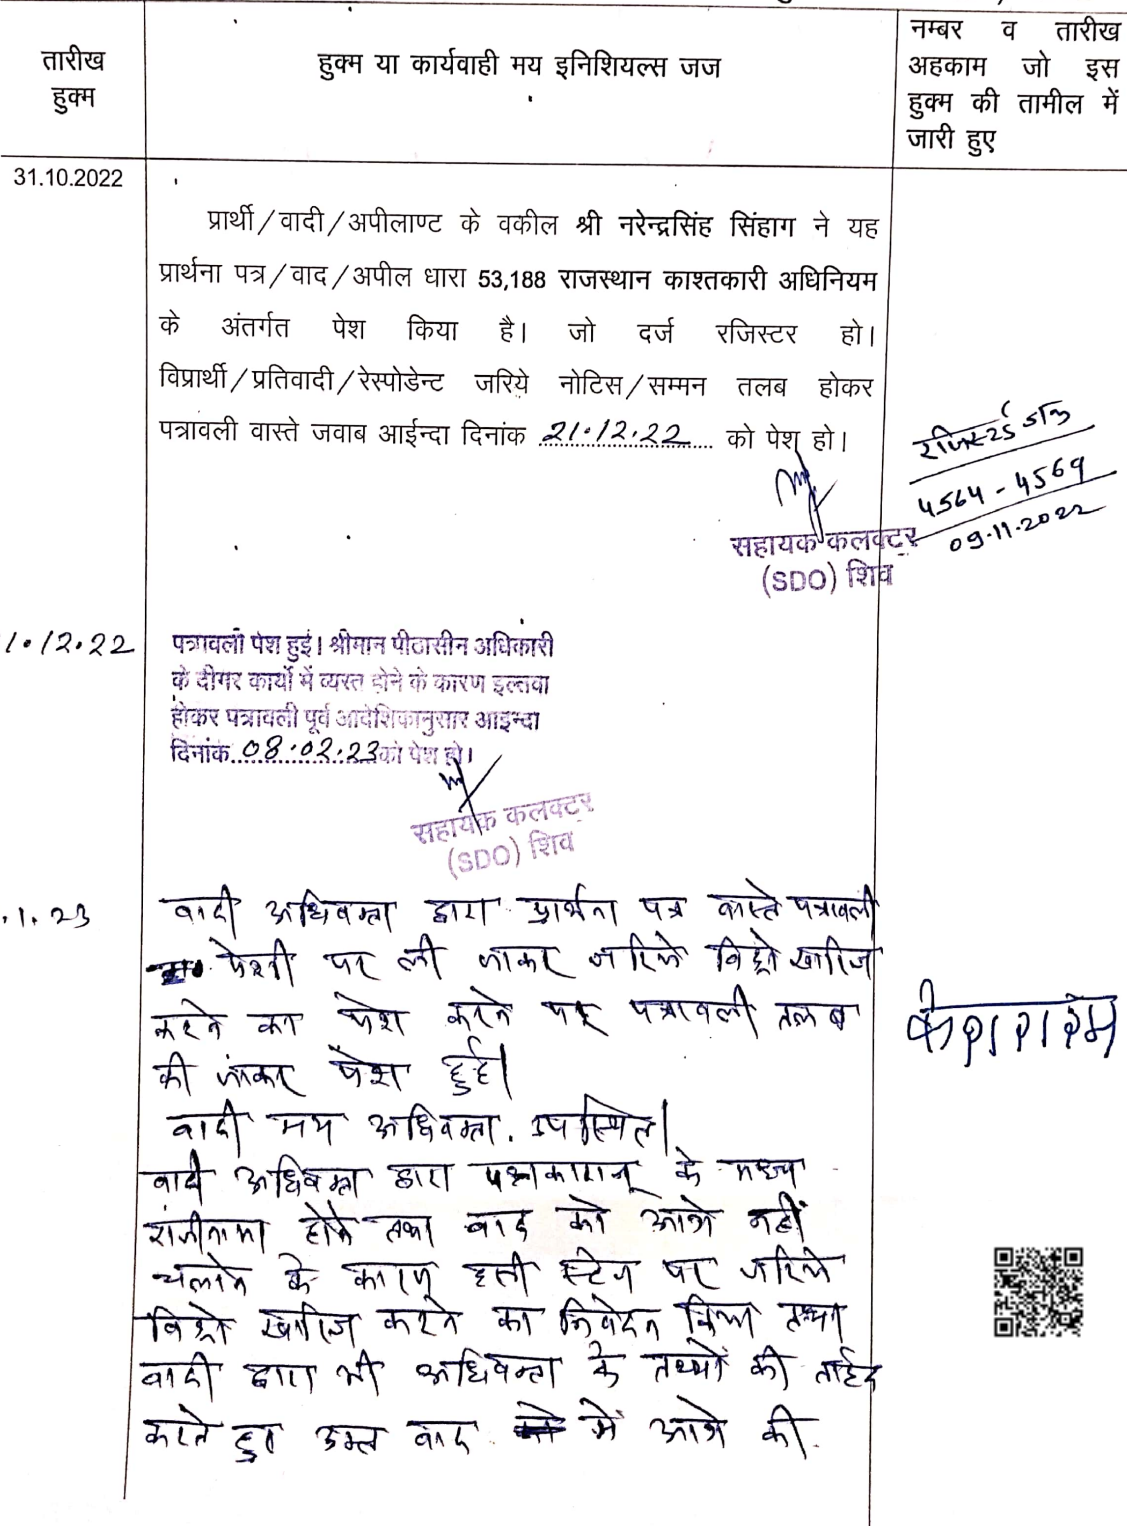 तारीख
हुक्म
हुक्म या कार्यवाही मय इनिशियल्स जज
नम्बर व तारीख
अहकाम जो इस
हुक्म की तामील में
जारी हुए
31.10.2022
प्रार्थी/वादी/अपीलाण्ट के वकील श्री नरेन्द्रसिंह सिंहाग ने यह
प्रार्थना पत्र/वाद/अपील धारा 53,188 राजस्थान काश्तकारी अधिनियम
के अंतर्गत पेश किया है। जो दर्ज रजिस्टर हो।
विप्रार्थी/प्रतिवादी/रेस्पोडेन्ट जरिये नोटिस/सम्मन तलब होकर
पत्रावली वास्ते जवाब आईन्दा दिनांक 21.12.22 को पेश हो।
रजिस्टर्ड डाक
4564-4569
09.11.2022
सहायक कलक्टर
(SDO) शिव
1.12.22
पत्रावली पेश हुई। श्रीमान पीठासीन अधिकारी
के दीगर कार्यो में व्यस्त होने के कारण इल्तवा
होकर पत्रावली पूर्व आदेशिकानुसार आइन्दा
दिनांक 08.02.23 को पेश हो।
सहायक कलक्टर
(SDO) शिव
.1.23
वादी अधिवक्ता द्वारा प्रार्थना पत्र वास्ते पत्रावली
पेशी पर ली जाकर जरिये विड्रो खारिज
करने का पेश करने पर पत्रावली तलब
की जाकर पेश हुई।
वादी मय अधिवक्ता उपस्थित।
वादी अधिवक्ता द्वारा पक्षकारान् के मध्य
राजीनामा होने तथा वाद को आगे नहीं
चलाने के कारण इसी स्टेज पर जरिये
विड्रो खारिज करने का निवेदन किया तथा
वादी द्वारा भी अधिवक्ता के तथ्यों की ताईद
करते हुए उक्त वाद में आगे की